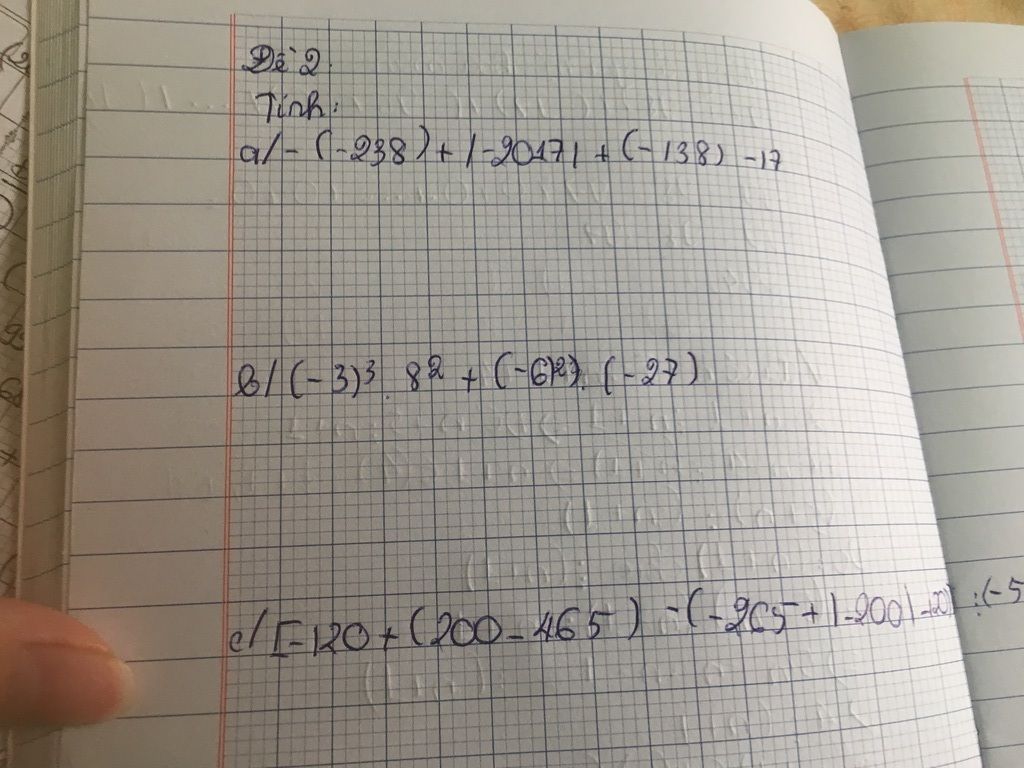 Đề 2.
Tính:
a/ - (-238) + |-2017| + (-138) - 17
b/ (-3)³. 8² + (-6)². (-27)
c/ [-120 + (200 - 465) - (-265 + |-200| - 20) : (-5